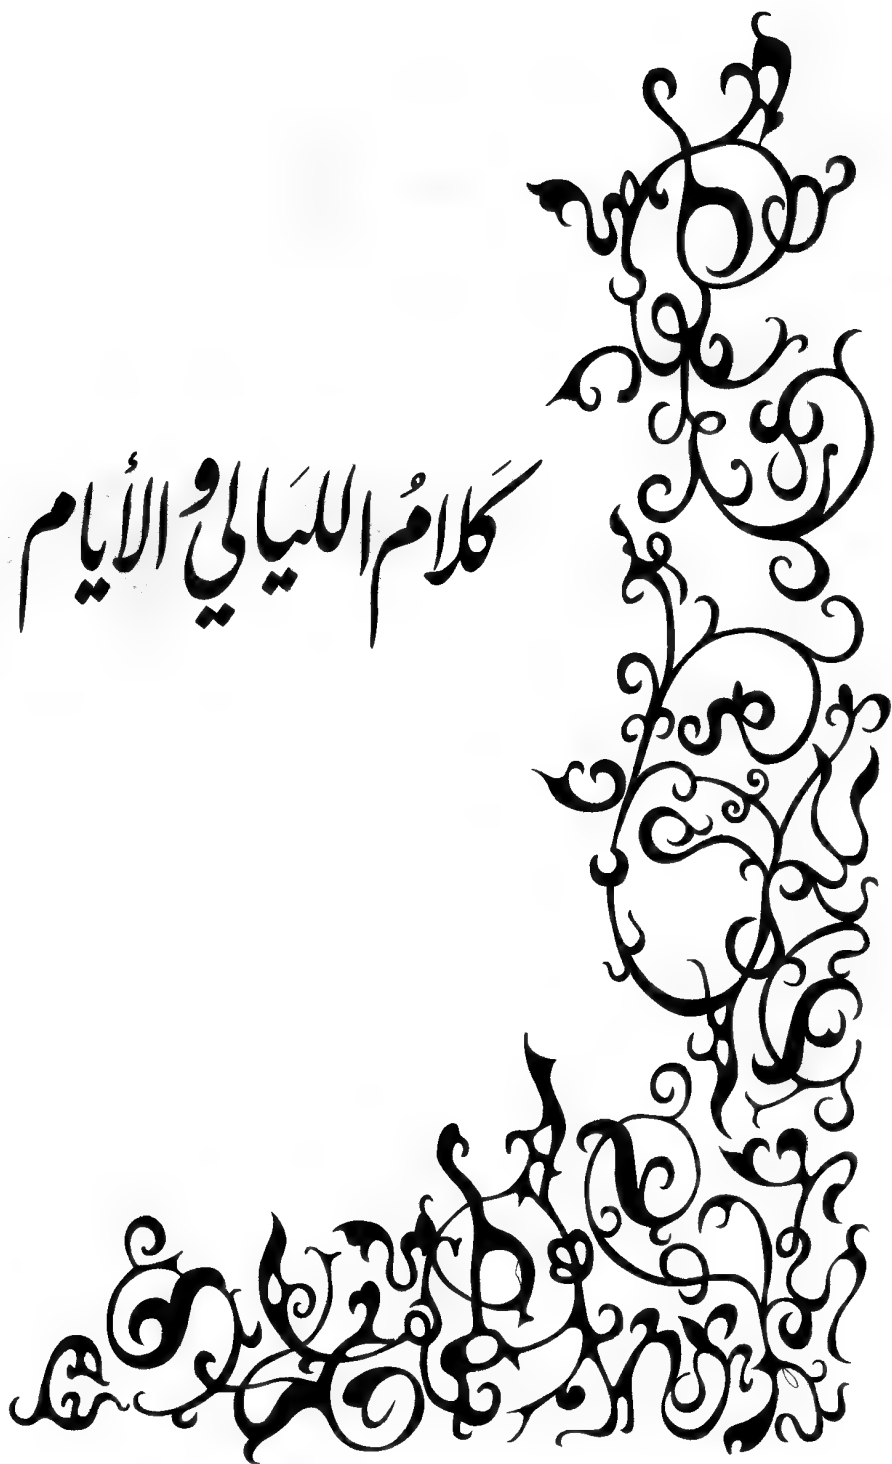 كَلامُ الليَالي والأيام